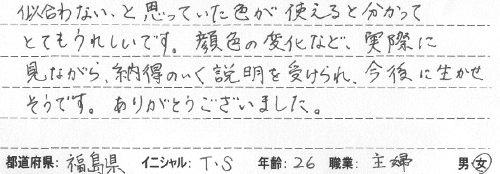 似合わない、と思っていた色が使えると分かって
とてもうれしいです。顔色の変化など、実際に
見ながら、納得のいく説明を受けられ、今後に生かせ
そうです。ありがとうございました。
都道府県: 福島県 イニシャル: T・S 年齢: 26 職業: 主婦 男・女